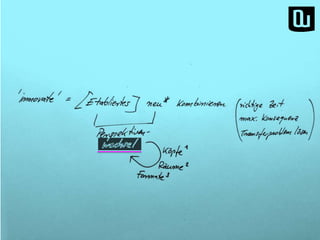 'innovate' = [Etabliertes] neu* kombinieren
(richtige Zeit
max. Konsequenz
Transferproblem lösen)
Perspektiven-
wechsel
Köpfe 1
Räume 2
Formate 3